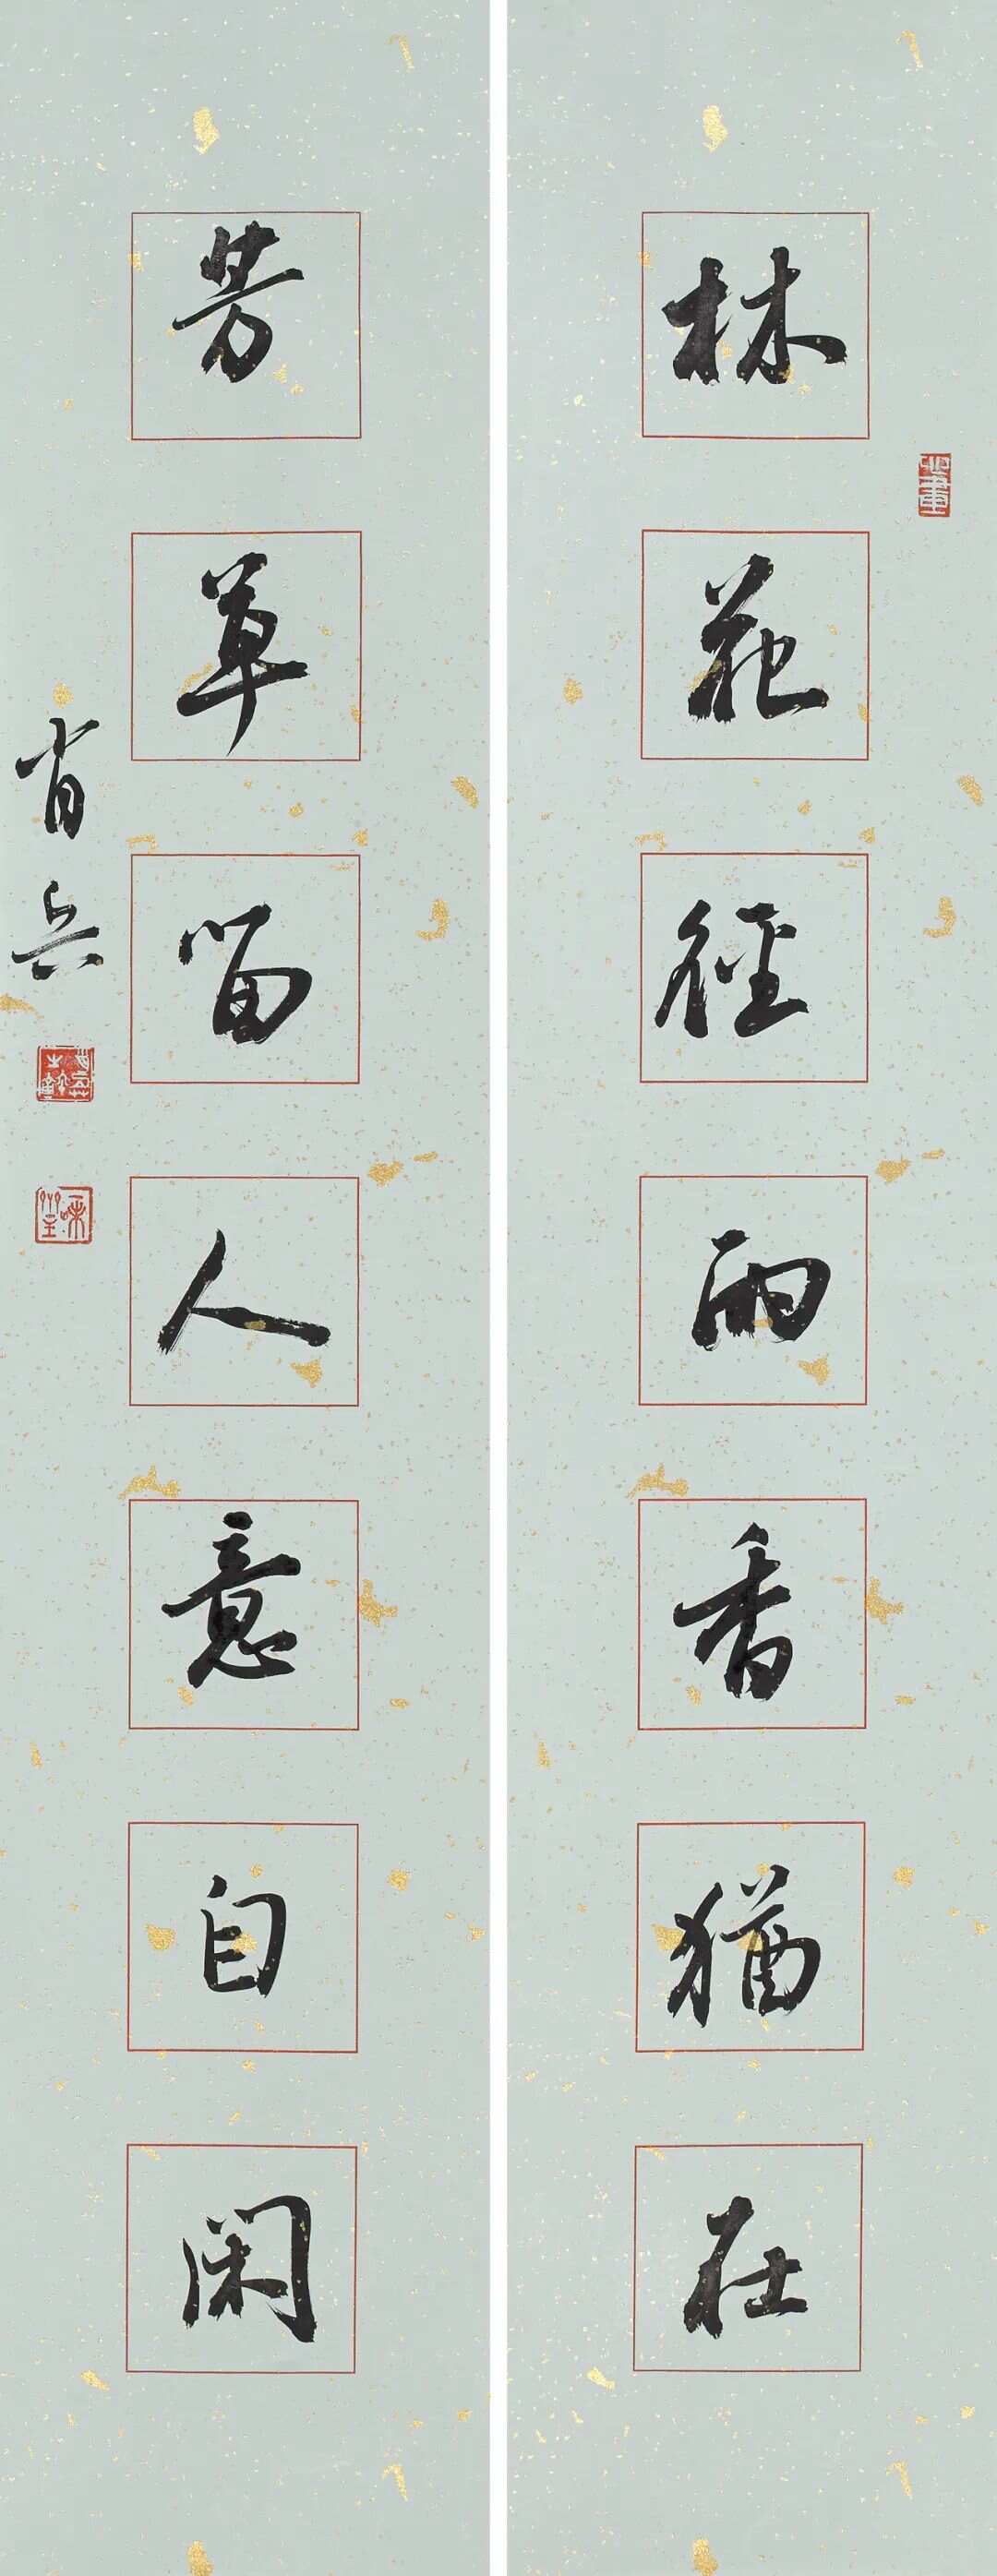 林花經雨香猶在
芳草留人意自闲
肖兵